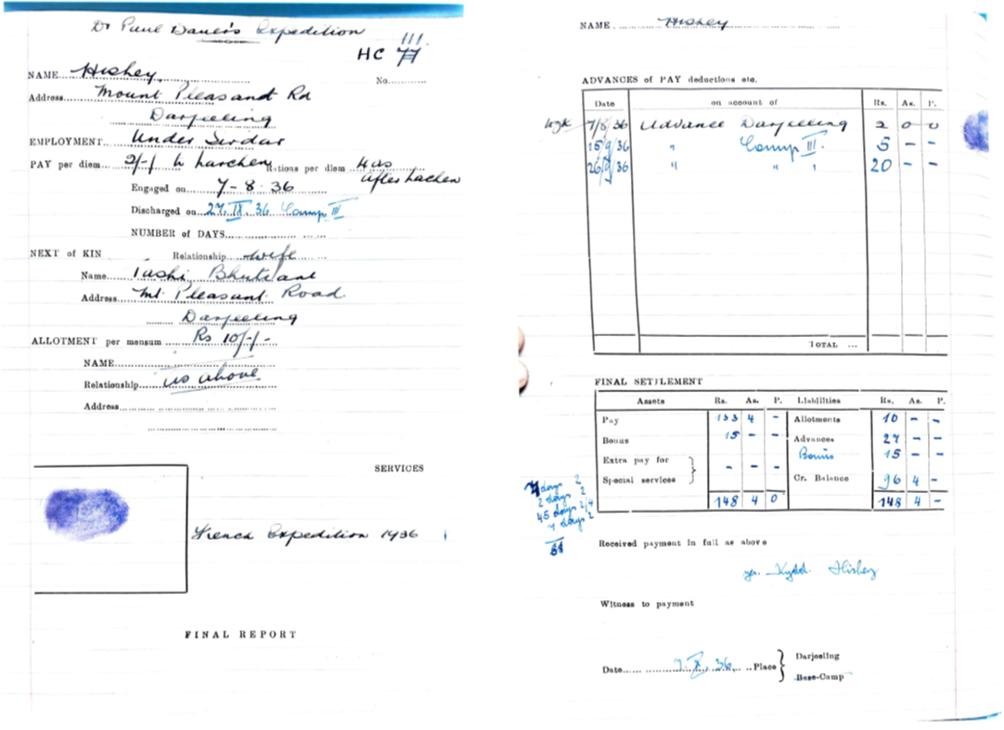 Dr Paul Bauer's Expedition
III
HC 77
NAME... Hishey No..........
Address Mount Pleasant Rd
Darjeeling
EMPLOYMENT Under Sirdar
PAY per diem 2/-/ to Lachen Rations per diem 4 as
after Lachen
Engaged on 7-8-36
Discharged on 27. IX. 36 Camp III
NUMBER of DAYS
NEXT of KIN Relationship wife
Name Tashi
Address Mt Pleasant Road
Darjeeling
ALLOTMENT per mensum Rs 10/-/-
NAME
Relationship as above
Address
SERVICES
French Expedition 1936
FINAL REPORT
NAME Hishey
ADVANCES of PAY deductions etc.
Date on account of Rs. As. P.
7/8/36 Advance Darjeeling 2 0 0
15/9/36 " Camp III. 5 - -
26/9/36 " " " 20 - -
TOTAL ...
FINAL SETTLEMENT
Assets Rs. As. P. Liabilities Rs. As. P.
Pay 133 4 - Allotments 10 - -
Bonus 15 - - Advances 27 - -
Bonus 15 - -
Extra pay for
Special services } - - - Cr. Balance 96 4 -
148 4 0 148 4 -
7 days 2
2 days 2
45 days 2/4
7 days 2
61
Received payment in full as above
Kydd Hishey
Witness to payment
Date 7. X. 36. Place } Darjeeling
Base-Camp